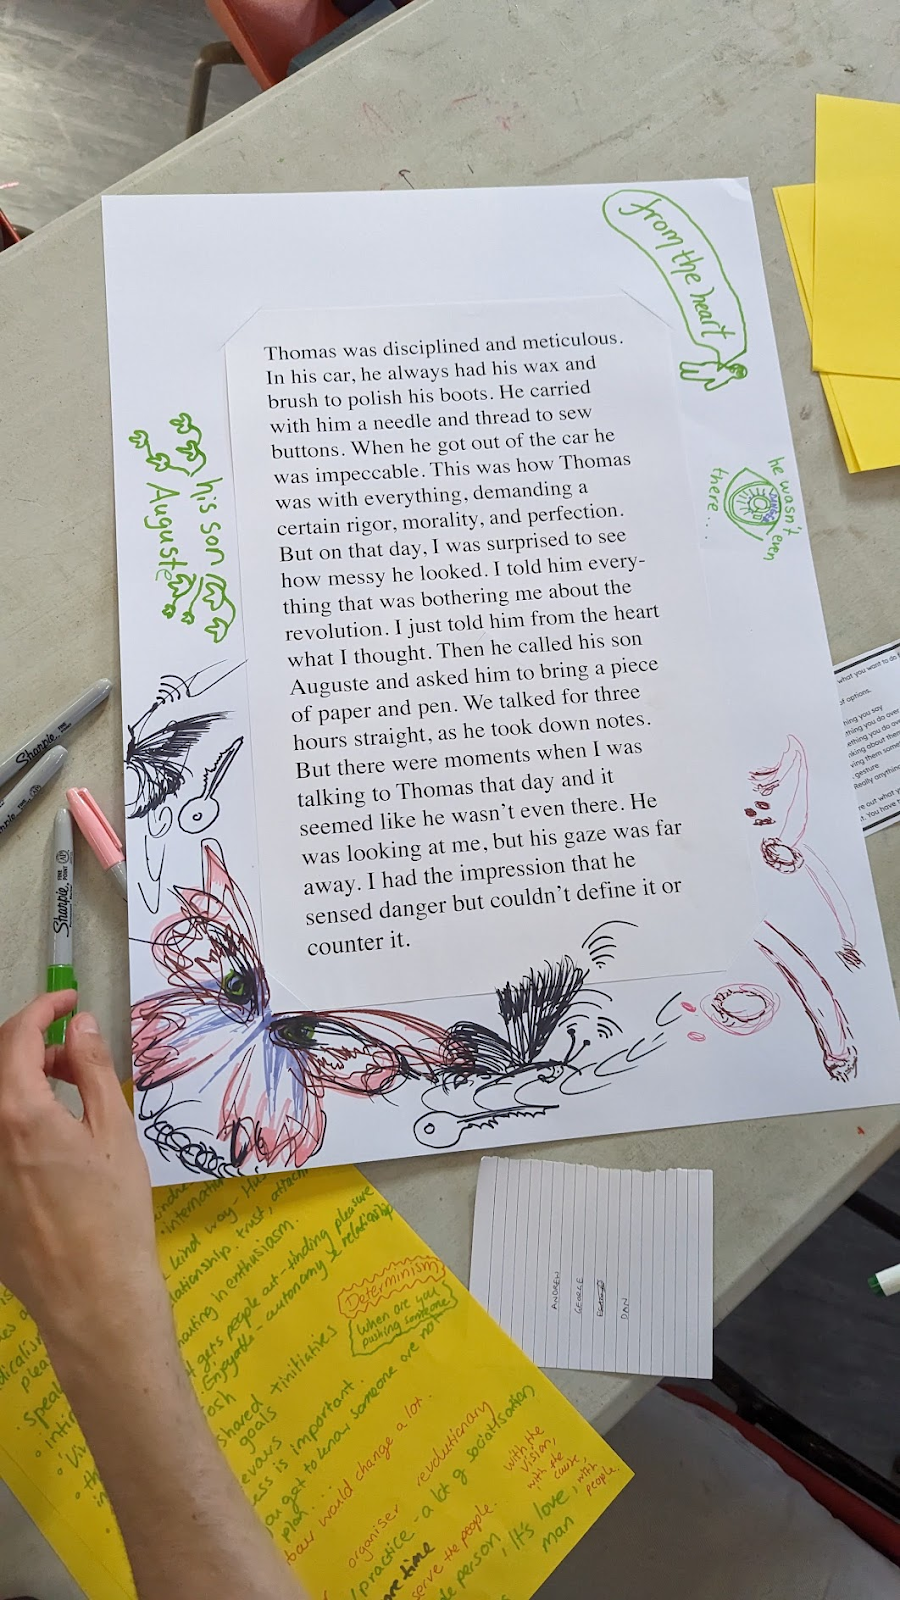 from the heart
Thomas was disciplined and meticulous.
In his car, he always had his wax and
brush to polish his boots. He carried
with him a needle and thread to sew
buttons. When he got out of the car he
was impeccable. This was how Thomas
was with everything, demanding a
certain rigor, morality, and perfection.
But on that day, I was surprised to see
how messy he looked. I told him every-
thing that was bothering me about the
revolution. I just told him from the heart
what I thought. Then he called his son
Auguste and asked him to bring a piece
of paper and pen. We talked for three
hours straight, as he took down notes.
But there were moments when I was
talking to Thomas that day and it
seemed like he wasn't even there. He
was looking at me, but his gaze was far
away. I had the impression that he
sensed danger but couldn't define it or
counter it.
he wasn't even
there..
his son
Auguste
what you want to do
options.
hing you say
thing you do over
ething you do ove
nking about them
ving them some
gesture
Really anything
re out what y
t. You have
Sharpie
Sharpie
Sharpie
internation
kind way - Hu
lationship, trust,
in enthusiasm.
gets people out - finding pleasure
Enjoyable - autonomy & relationship
shared initiatives
goals
Determinism
When are you
pushing someone
ess is important.
you get to know someone are no
plan
would change a lot.
organiser revolutionary
practice - a lot of socialisation
serve the people.
with the
vision,
with the
cause,
with
people.
person, It's love,
man
ANDREW
GEORGE
DAN